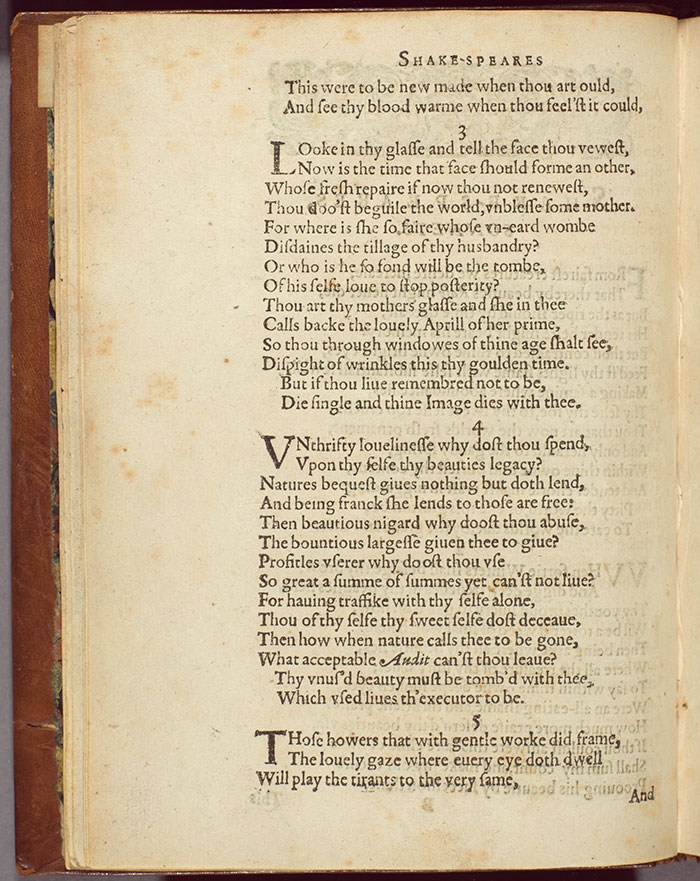 SHAKE-SPEARES
This were to be new made when thou art ould,
And ſee thy blood warme when thou feel'ſt it could,
3
LOoke in thy glaſſe and tell the face thou veweſt,
Now is the time that face ſhould forme an other,
Whoſe freſh repaire if now thou not reneweſt,
Thou doo'ſt beguile the world, vnbleſſe ſome mother.
For where is ſhe ſo faire whoſe vn-eard wombe
Diſdaines the tillage of thy husbandry?
Or who is he ſo fond will be the tombe,
Of his ſelfe loue to ſtop poſterity?
Thou art thy mothers glaſſe and ſhe in thee
Calls backe the louely Aprill of her prime,
So thou through windowes of thine age ſhalt ſee,
Diſpight of wrinkles this thy goulden time.
But if thou liue remembred not to be,
Die ſingle and thine Image dies with thee.
4
VNthrifty louelineſſe why doſt thou ſpend,
Vpon thy ſelfe thy beauties legacy?
Natures bequeſt giues nothing but doth lend,
And being franck ſhe lends to thoſe are free:
Then beautious nigard why dooſt thou abuſe,
The bountious largeſſe giuen thee to giue?
Profitles vſerer why dooſt thou vſe
So great a ſumme of ſummes yet can'ſt not liue?
For hauing traffike with thy ſelfe alone,
Thou of thy ſelfe thy ſweet ſelfe doſt deceaue,
Then how when nature calls thee to be gone,
What acceptable Audit can'ſt thou leaue?
Thy vnuſ'd beauty muſt be tomb'd with thee,
Which vſed liues th'executor to be.
5
THoſe howers that with gentle worke did frame,
The louely gaze where euery eye doth dwell
Will play the tirants to the very ſame,
And